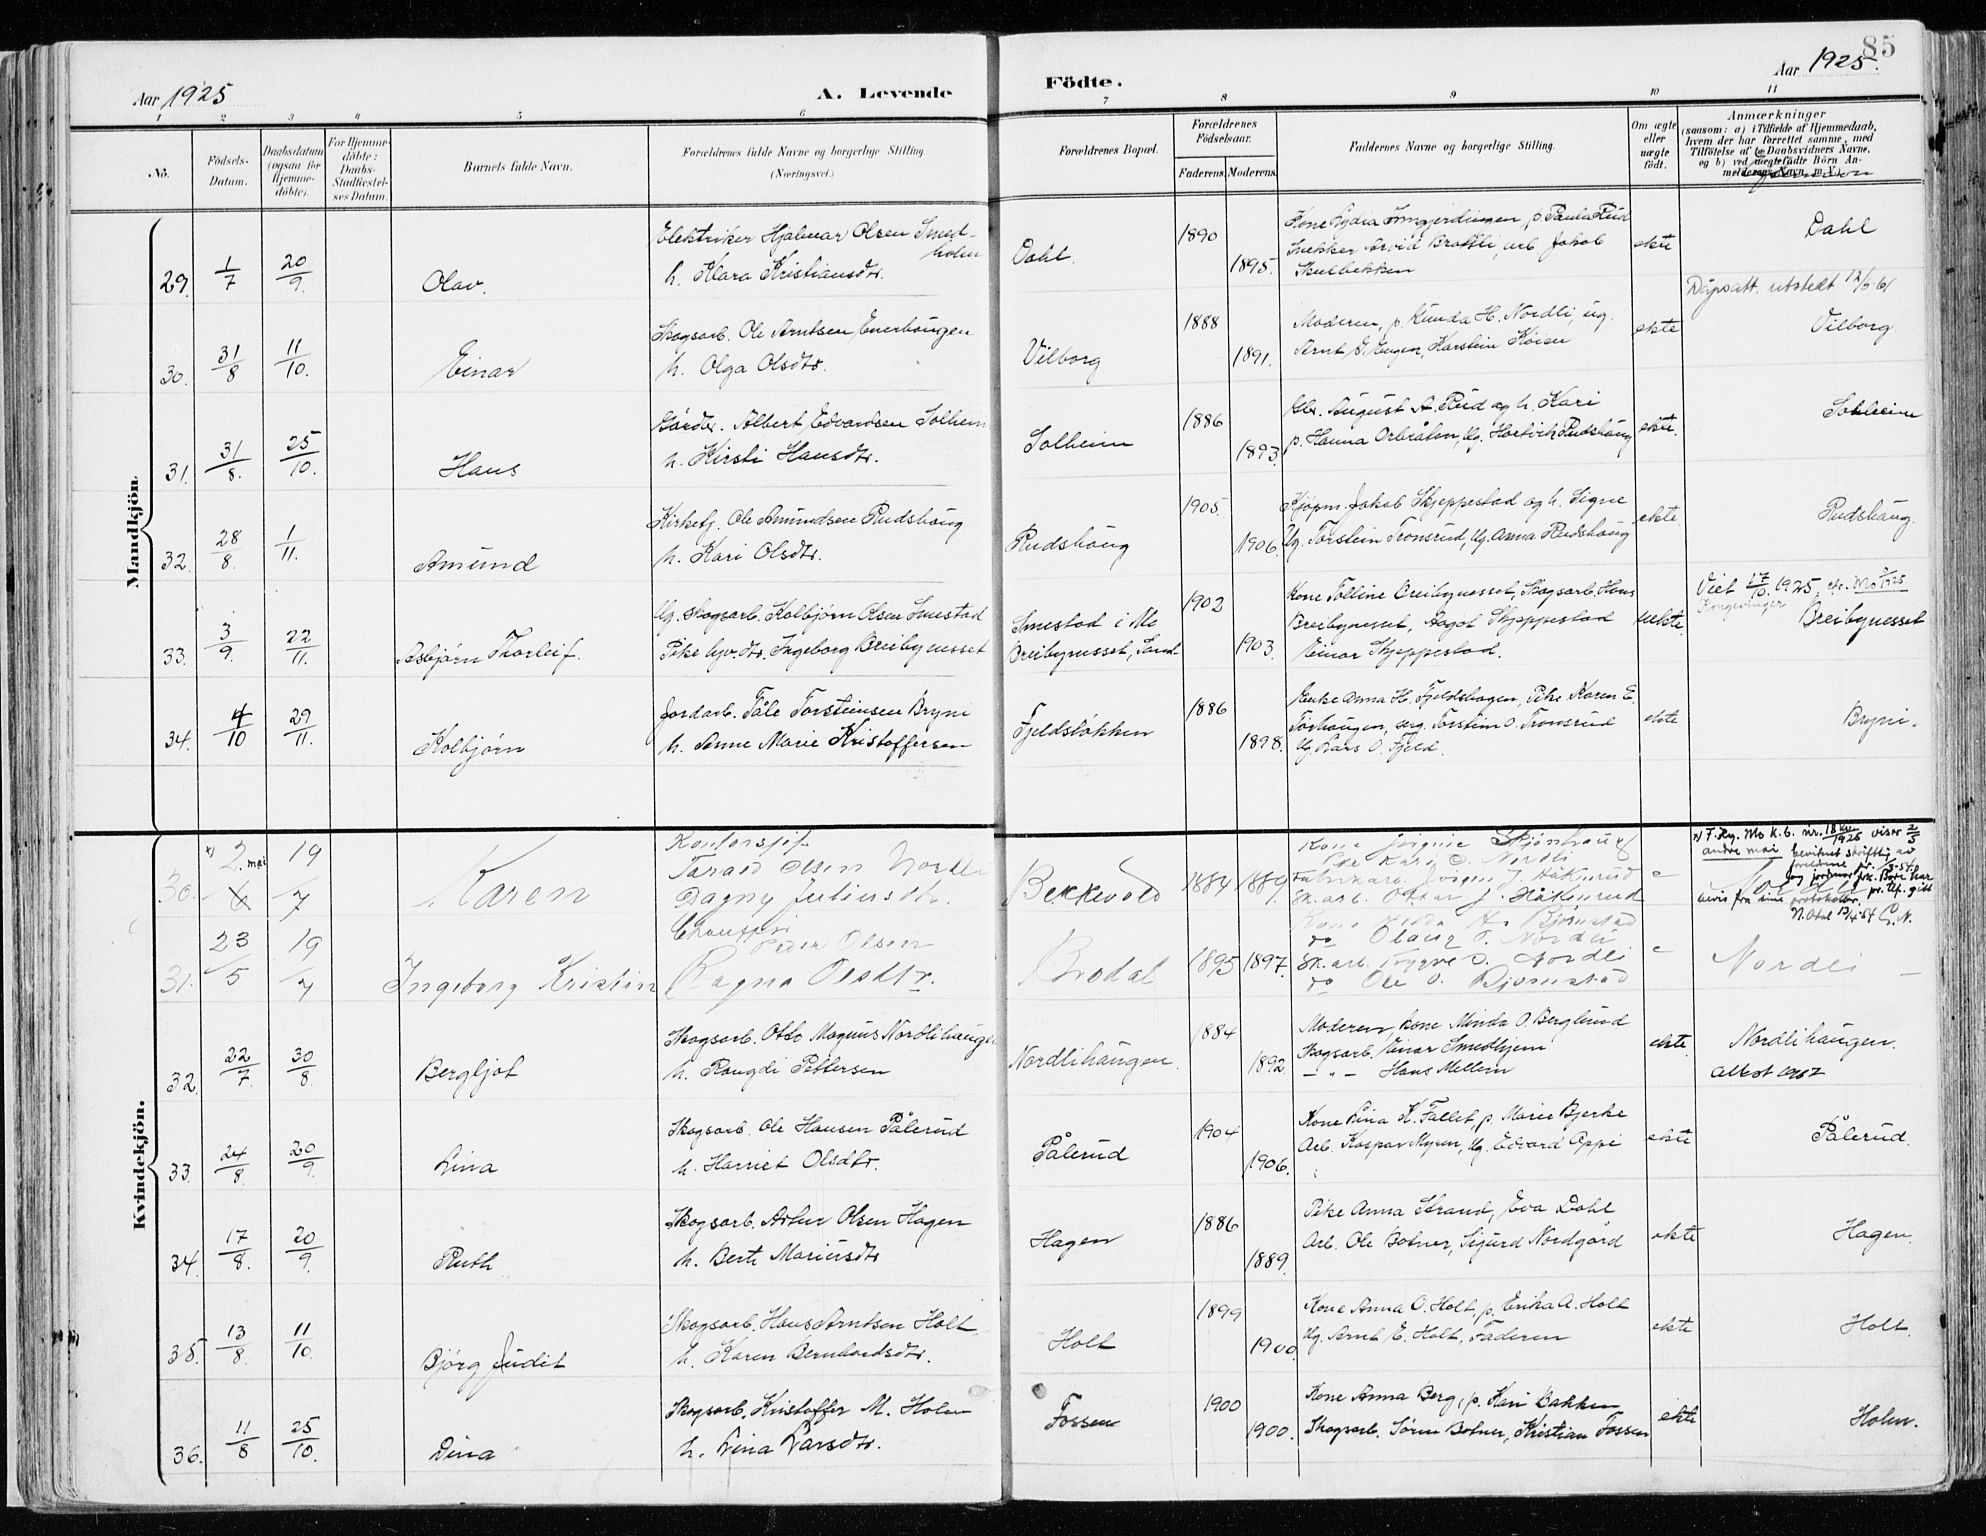 85
Aar 1925
A. Levende Födte.
Aar 1925.
1 2 3 4 5 6 7 8 9 10 11
No.
Födsels-Datum.
Daabsdatum (ogsaa for Hjemmedöbte).
For Hjemmedöbte: Daabs-Stadfæstelses Datum.
Barnets fulde Navn.
Forældrenes fulde Navne og borgerlige Stilling
(Næringsvei.)
Forældrenes Bopæl.
Forældrenes Födselsaar.
Faderens. Moderens.
Faddernes Navne og borgerlige Stilling.
Om ægte eller uægte födt.
Anmærkninger
(saasom: a) i Tilfælde af Hjemmedaab,
hvem der har forrettet samme, med
Tilföielse af Daabsvidners Navne,
og b) ved uægtefödte Börn Anmelderens Navn m. V.)
Mandkjön.
29. 1/7 20/9. Olav.
Elektriker Hjalmar Olsen Smedholm
h. Klara Kristiansdtr.
Dahl. 1890 1895.
Kone Lydia Imgjerdingen, p. Paula Rud
Snekker Arvid Bratli, arb. Jakob
Skulbekken
ekte
Dahl
Dåpsatt. utstedt
30. 31/8 11/10. Einar
Skogsarb. Ole Arntsen Enerhaugen
h. Olga Olsdtr.
Vilborg 1888 1891.
Moderen, p. Kunda H. Nordli, ug.
Arnt E. Engen, Karstein Koien
ekte
Vilborg
31. 31/8. 25/10. Hans
Gårdbr. Albert Edvardsen Solheim
h. Kirsti Hansdtr.
Solheim 1886 1893.
Gbr. August A. Rud og h. Kari
p. Hanna Orbråten, Ug. Hartvik Rudshaug
ekte.
Solheim
32. 28/8. 1/11. Amund
Kirkesj. Ole Amundsen Rudshaug
h. Kari Olsdtr.
Rudshaug 1905 1906.
Kjøpm. Jakob Skjeppestad og h. Signe
Ug. Torstein Tronsrud, Ug. Anna Rudshaug
ekte
Rudshaug.
33. 3/9. 22/11. Asbjørn Thorleif.
Ug. skogsarb. Kolbjørn Olsen Smestad
Pike hjv. dtr. Ingeborg Breibynesset
Smestad i Mo
Breibynesset, Sand 1902 1903.
Kone Tolline Breibynesset, Skogsarb. Hans
Breibynesset, Aagot Skjeppestad
Einar Skjeppestad.
uekte.
Viet 17/10. 1925
Kongsvinger
Breibynesset
34. 4/10 29/11. Kolbjørn
Jordarb. Påle Torsteinsen Bryni
h. Anne Marie Kristoffersen
Fjeldsløkken 1886 1898.
Enke Anna H. Fjeldshagen, Pike Karen E.
Torhaugen, Torstein O. Tronsrud
Ug. Lars O. Fjeld.
ekte
Bryni.
Kvindekjön.
30. x) 2. mai 19/7 Karen
Kontorsjef
Tarald Olsen Nordli
Dagny Juliusdtr.
Bekkevold 1884 1889.
Pike Kari O. Nordli
Fabrikarb. Jørgen J. Håkerud
Sk.arb. Oskar J. Håkerud
x) F. Reg. Mo k. b. nr. 18 kv/1925 viser 2/5
andre mai bevitnet skriftlig av
foreldrene
avis fra sine protokoller.
N. Odal
31. 23/5 19/7 Ingeborg Kristin
Chauffør
Peder Olsen
Ragna Olsdtr.
Brodal 1895 1897.
do Olaug O. Nordli
Sk.arb. Trygve O. Nordli
do Ole O. Bjørnstad
Nordli
32. 22/7. 30/8. Bergljot
Skogsarb. Otto Magnus Nordlihaugen
h. Raugdi Pettersen
Nordlihaugen. 1884 1892.
Moderen, kone Minda O. Berglund
Skogsarb. Einar Smedhjem
— „ — Hans Mellem
ekte.
Nordlihaugen.
33. 24/8. 20/9. Lina
Skogsarb. Ole Hansen Pålerud
h. Harriet Olsdtr.
Pålerud 1904 1906.
Kone Lina K. Fallet, p. Marie Bjerke
Arb. Kaspar Myren, Ug. Edvard Oppi
ekte
Pålerud.
34. 17/8. 20/9. Ruth
Skogsarb. Artur Olsen Hagen
h. Berte Mariusdtr
Hagen 1886 1889.
Pike Anna Strand, Eva Dahl
Arb. Ole Botner, Sigurd Nordgård
ekte
Hagen.
35. 13/8. 11/10. Bjørg Judit
Skogsarb. Hans Arntsen Holt
h. Karen Bernhardsdtr.
Holt 1899 1900.
Kone Anna O. Holt, p. Erika A. Holt
Ug. Arnt E. Holt, Faderen
ekte
Holt.
36. 11/8 25/10. Dina
Skogsarb. Kristoffer M. Holm
h. Lina Larsdtr.
Fossen 1900 1900.
Kone Anna Berg, p. Kari Bakken
Skogsarb. Søren Botner, Kristian Fossen
ekte
Holm.